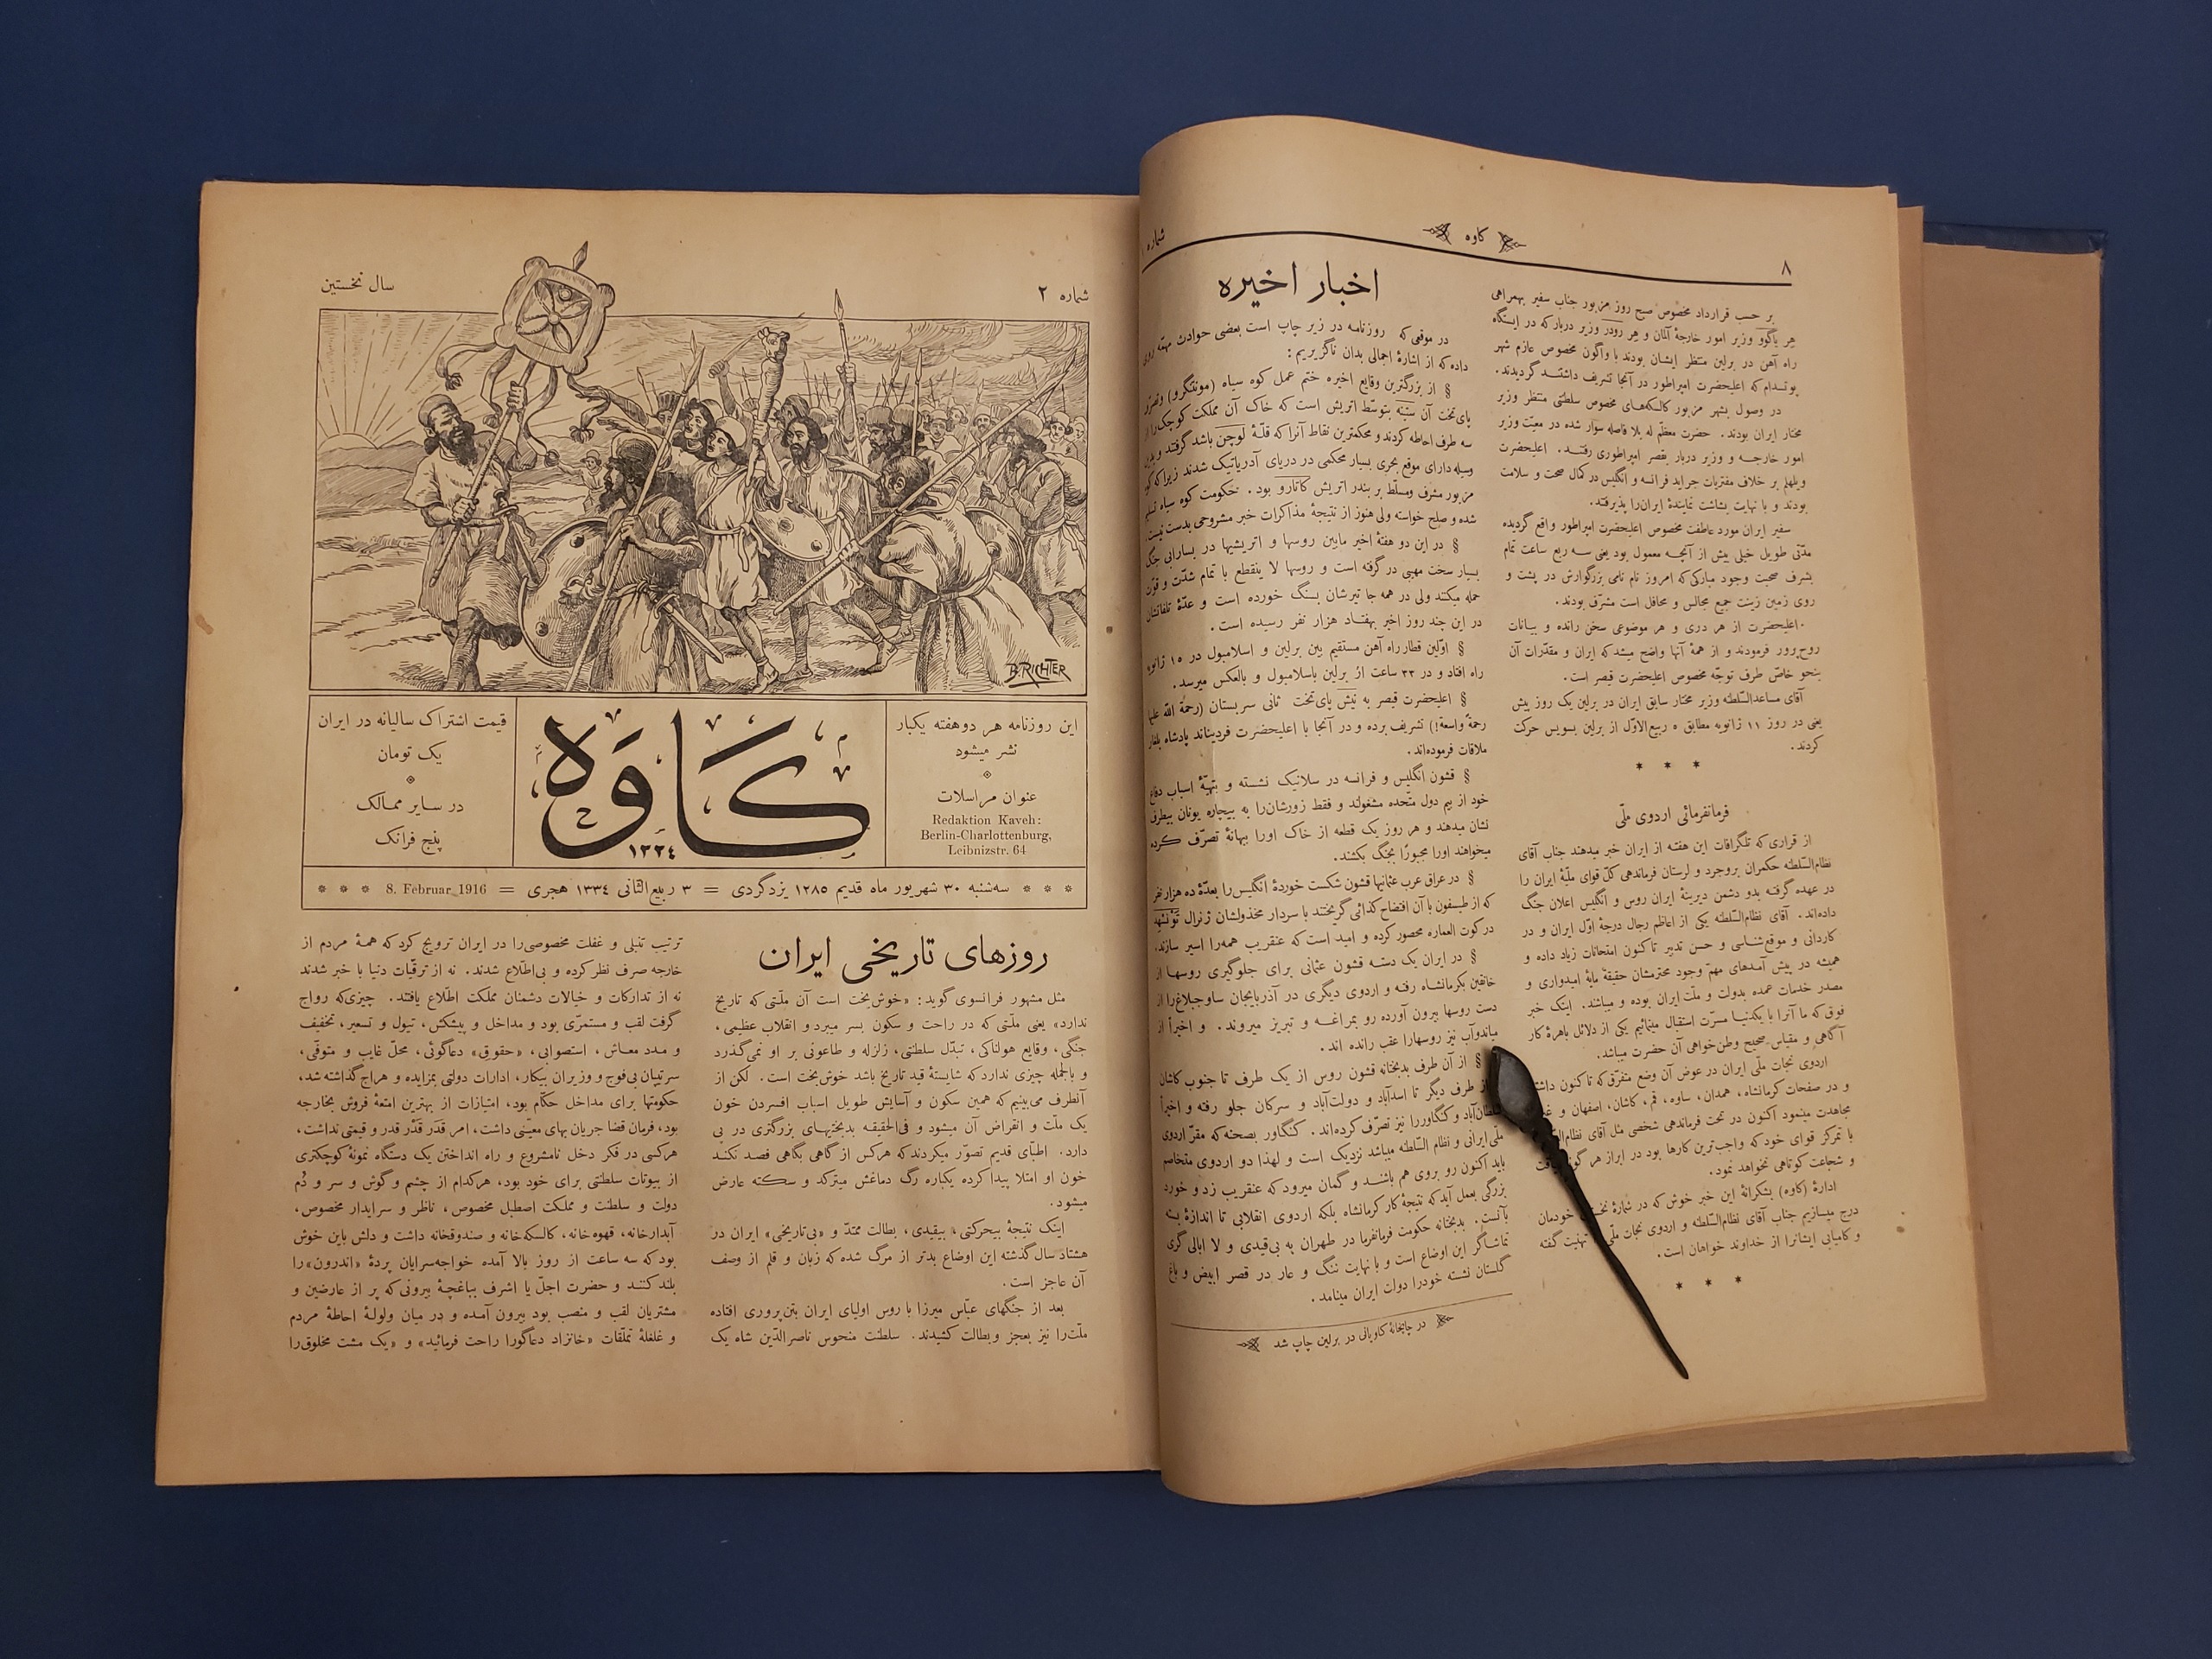 ۸
کاوه
شماره
بر حسب قرارداد مخصوص صبح روز مزبور جناب سفیر بهمراهی
هر یاگوو وزیر امور خارجهٔ آلمان و هر رودر وزیر دربار که در ایستگاه
راه آهن در برلین منتظر ایشان بودند با واگون مخصوص عازم شهر
پوتسدام که اعلیحضرت امپراطور در آنجا تشریف داشتند گردیدند.
در وصول بشهر مزبور کالسکه‌های مخصوص سلطنتی منتظر وزیر
مختار ایران بودند. حضرت معظّم له بلا فاصله سوار شده در معیّت وزیر
امور خارجه و وزیر دربار بقصر امپراطوری رفتند. اعلیحضرت
ویلهلم بر خلاف مفتریات جراید فرانسه و انگلیس در کمال صحت و سلامت
بودند و با نهایت بشاشت نمایندهٔ ایران‌را پذیرفته.
سفیر ایران مورد عاطفت مخصوص اعلیحضرت امپراطور واقع گردیده
مدّتی طویل خیلی بیش از آنچه معمول بود یعنی سه ربع ساعت تمام
بشرف صحبت وجود مبارکی که امروز نام نامی بزرگوارش در پشت و
روی زمین زینت جمیع مجالس و محافل است مشرّف بودند.
اعلیحضرت از هر دری و هر موضوعی سخن رانده و بیانات
روح‌پرور فرمودند و از همهٔ آنها واضح میشد که ایران و مقدّرات آن
بنحو خاصّ طرف توجّه مخصوص اعلیحضرت قیصر است.
آقای مساعدالسّلطنه وزیر مختار سابق ایران در برلین یک روز پیش
یعنی در روز ۱۱ ژانویه مطابق ۵ ربیع‌الاوّل از برلین بسویس حرکت
کردند.
* * *
فرمانفرمائی اردوی ملّی
از قراری که تلگرافات این هفته از ایران خبر میدهند جناب آقای
نظام‌السّلطنه حکمران بروجرد و لرستان فرماندهی کلّ قوای ملّیهٔ ایران را
در عهده گرفته بدو دشمن دیرینهٔ ایران روس و انگلیس اعلان جنگ
داده‌اند. آقای نظام‌السّلطنه یکی از اعاظم رجال درجهٔ اوّل ایران و در
کاردانی و موقع‌شناسی و حسن تدبیر تا کنون امتحانات زیاد داده و
همیشه در پیش آمدهای مهمّ وجود محترمشان حقیقةً مایهٔ امیدواری و
مصدر خدمات عمده بدولت و ملّت ایران بوده و میباشند. اینک خبر
فوق که ما آنرا با یکدنیا مسرّت استقبال مینمائیم یکی از دلائل باهرهٔ کار
آگاهی و مقیاس صحیح وطن‌خواهی آن حضرت میباشد.
اردوی نجات ملّی ایران در عوض آن وضع متفرّق که تا کنون داشته
و در صفحات کرمانشاه، همدان، ساوه، قم، کاشان، اصفهان و
مجاهدت مینمود اکنون در تحت فرماندهی شخصی مثل آقای
با تمرکز قوای خود که واجب‌ترین کارها بود در ابراز هر گونه
و شجاعت کوتاهی نخواهد نمود.
ادارهٔ (کاوه) بشکرانهٔ این خبر خوش که در شمارهٔ خودمان
درج میسازیم جناب آقای نظام‌السّلطنه و اردوی نجات ملّی تهنیت گفته
و کامیابی ایشانرا از خداوند خواهان است.
* * *
اخبار اخیره
در موقعی که روزنامه در زیر چاپ است بعضی حوادث مهمّه روی
داده که از اشارهٔ اجمالی بدان ناگزیریم:
§ از بزرگترین وقایع اخیره ختم عمل کوه سیاه (مونتنگرو) و
پای‌تخت آن بتوسّط اتریش است که خاک آن مملکت کوچک را از
سه طرف احاطه کردند و محکمترین نقاط آنرا که قلّهٔ لوچن باشد گرفتند و
وسیله دارای موقع بحری بسیار محکمی در دریای آدریاتیک شدند زیرا که
مزبور مشرف ومسلّط بر بندر اتریش کاتارو بود. حکومت کوه سیاه تسلیم
شده و صلح خواسته ولی هنوز از نتیجهٔ مذاکرات خبر مشروحی بدست نیست.
§ در این دو هفتهٔ اخیر مابین روسها و اتریشیها در بسارابی جنگ
بسیار سخت مهیبی در گرفته است و روسها لا ینقطع با تمام شدّت و قوّت
حمله میکنند ولی در همه جا تیرشان بسنگ خورده است و عدّهٔ تلفاتشان
در این چند روز اخیر بهفتاد هزار نفر رسیده است.
§ اوّلین قطار راه آهن مستقیم بین برلین و اسلامبول در ۱۵ ژانویه
راه افتاد و در ۳۳ ساعت از برلین باسلامبول و بالعکس میرسد.
§ اعلیحضرت قیصر به نیش پای‌تخت ثانی سربستان (رحمة الله علیها
رحمةً واسعة!) تشریف برده و در آنجا با اعلیحضرت فردیناند پادشاه بلغار
ملاقات فرموده‌اند.
§ قشون انگلیس و فرانسه در سلانیک نشسته و بتهیّهٔ اسباب دفاع
خود از بیم دول متّحده مشغولند و فقط زورشان‌را به بیچاره یونان بیطرف
نشان میدهند و هر روز یک قطعه از خاک اورا ببهانهٔ تصرّف کرده
میخواهند اورا مجبوراً بجنگ بکشند.
§ در عراق عرب عثمانیها قشون شکست خوردهٔ انگلیس‌را بعدّهٔ ده هزار نفر
که از طیسفون با آن افتضاح کذائی گریختند با سردار مخذولشان ژنرال
در کوت العماره محصور کرده و امید است که عنقریب همه‌را اسیر سازند.
§ در ایران یک دسته قشون عثمانی برای جلوگیری روسها از
خانقین بکرمانشاه رفته و اردوی دیگری در آذربایجان ساوجبلاغ‌را از
دست روسها بیرون آورده رو بمراغه و تبریز میروند. و اخیراً از
میاندوآب نیز روسهارا عقب رانده اند.
§ از آن طرف بدبختانه قشون روس از یک طرف تا جنوب کاشان
از طرف دیگر تا اسدآباد و دولت‌آباد و سرکان جلو رفته و اخیراً
سلطان‌آباد و کنگاوررا نیز تصرّف کرده‌اند. کنگاور بصحنه که مقرّ اردوی
ملّی ایرانی و نظام السّلطنه میباشد نزدیک است و لهذا دو اردوی متخاصم
باید اکنون رو بروی هم باشند و گمان میرود که عنقریب زد و خورد
بزرگی بعمل آید که نتیجهٔ کار کرمانشاه بلکه اردوی انقلابی تا اندازهٔ بسته
بآنست. بدبختانه حکومت فرمانفرما در طهران به بی‌قیدی و لا ابالی گری
تماشاگر این اوضاع است و با نهایت ننگ و عار در قصر ابیض و باغ
گلستان نشسته خودرا دولت ایران مینامد.
در چاپخانهٔ کاویانی در برلین چاپ شد
شماره ۲
سال نخستین
B. RICHTER
این روزنامه هر دو هفته یکبار
نشر میشود
عنوان مراسلات
Redaktion Kaveh:
Berlin-Charlottenburg,
Leibnizstr. 64
کاوه
۱۳۳٤
قیمت اشتراک سالیانه در ایران
یک تومان
در سایر ممالک
پنج فرانک
* * * سه‌شنبه ۳۰ شهریور ماه قدیم ۱۲۸۵ یزدگردی = ۳ ربیع‌الثّانی ۱۳۳٤ هجری = 8. Februar 1916 * * *
روزهای تاریخی ایران
مثل مشهور فرانسوی گوید: «خوش‌بخت است آن ملّتی که تاریخ
ندارد» یعنی ملّتی که در راحت و سکون بسر میبرد و انقلاب عظیمی،
جنگی، وقایع هولناکی، تبدّل سلطنتی، زلزله و طاعونی بر او نمی‌گذرد
و بالجمله چیزی ندارد که شایستهٔ قید تاریخ باشد خوش‌بخت است. لکن از
آنطرف می‌بینیم که همین سکون و آسایش طویل اسباب افسردن خون
یک ملّت و انقراض آن میشود و فی‌الحقیقه بدبختیهای بزرگتری در پی
دارد. اطبّای قدیم تصوّر میکردند که هرکس از گاهی بگاهی فصد نکند
خون او امتلا پیدا کرده یکباره رگ دماغش میترکد و سکته عارض
میشود.
اینک نتیجهٔ بیحرکتی، بیقیدی، بطالت ممتدّ و «بی‌تاریخی» ایران در
هشتاد سال گذشته این اوضاع بدتر از مرگ شده که زبان و قلم از وصف
آن عاجز است.
بعد از جنگهای عبّاس میرزا با روس اولیای ایران بتن‌پروری افتاده
ملّت‌را نیز بعجز وبطالت کشیدند. سلطنت منحوس ناصرالدّین شاه یک
ترتیب تنبلی و غفلت مخصوصی‌را در ایران ترویج کرد که همهٔ مردم از
خارجه صرف نظر کرده و بی‌اطّلاع شدند. نه از ترقّیات دنیا با خبر شدند
نه از تدارکات و خیالات دشمنان مملکت اطّلاع یافتند. چیزی‌که رواج
گرفت لقب و مستمرّی بود و مداخل و پیشکش، تیول و تسعیر، تخفیف
و مدد معاش، استصوابی، «حقوق» دعاگوئی، محلّ غایب و متوفّی،
سرتیپان بی‌فوج و وزیران بیکار، ادارات دولتی بمزایده و هراج گذاشته شد،
حکومتها برای مداخل حکّام بود، امتیازات از بهترین امتعهٔ فروش بخارجه
بود، فرمان قضا جریان بهای معیّنی داشت، امر قدَر قَدْر قدر و قیمتی نداشت،
هرکسی در فکر دخل نامشروع و راه انداختن یک دستگاه نمونهٔ کوچکتری
از بیوتات سلطنتی برای خود بود، هرکدام از چشم و گوش و سر و دُم
دولت و سلطنت و مملکت اصطبل مخصوص، ناظر و سرایدار مخصوص،
آبدارخانه، قهوه‌خانه، کالسکه‌خانه و صندوقخانه داشت و دلش باین خوش
بود که سه ساعت از روز بالا آمده خواجه‌سرایان پردهٔ «اندرون»را
بلند کنند و حضرت اجلّ یا اشرف بباغچهٔ بیرونی که پر از عارضین و
مشتریان لقب و منصب بود بیرون آمده و در میان ولولهٔ احاطهٔ مردم
و غلغلهٔ تملّقات «خانزاد دعاگورا راحت فرمائید» و «یک مشت مخلوق‌را